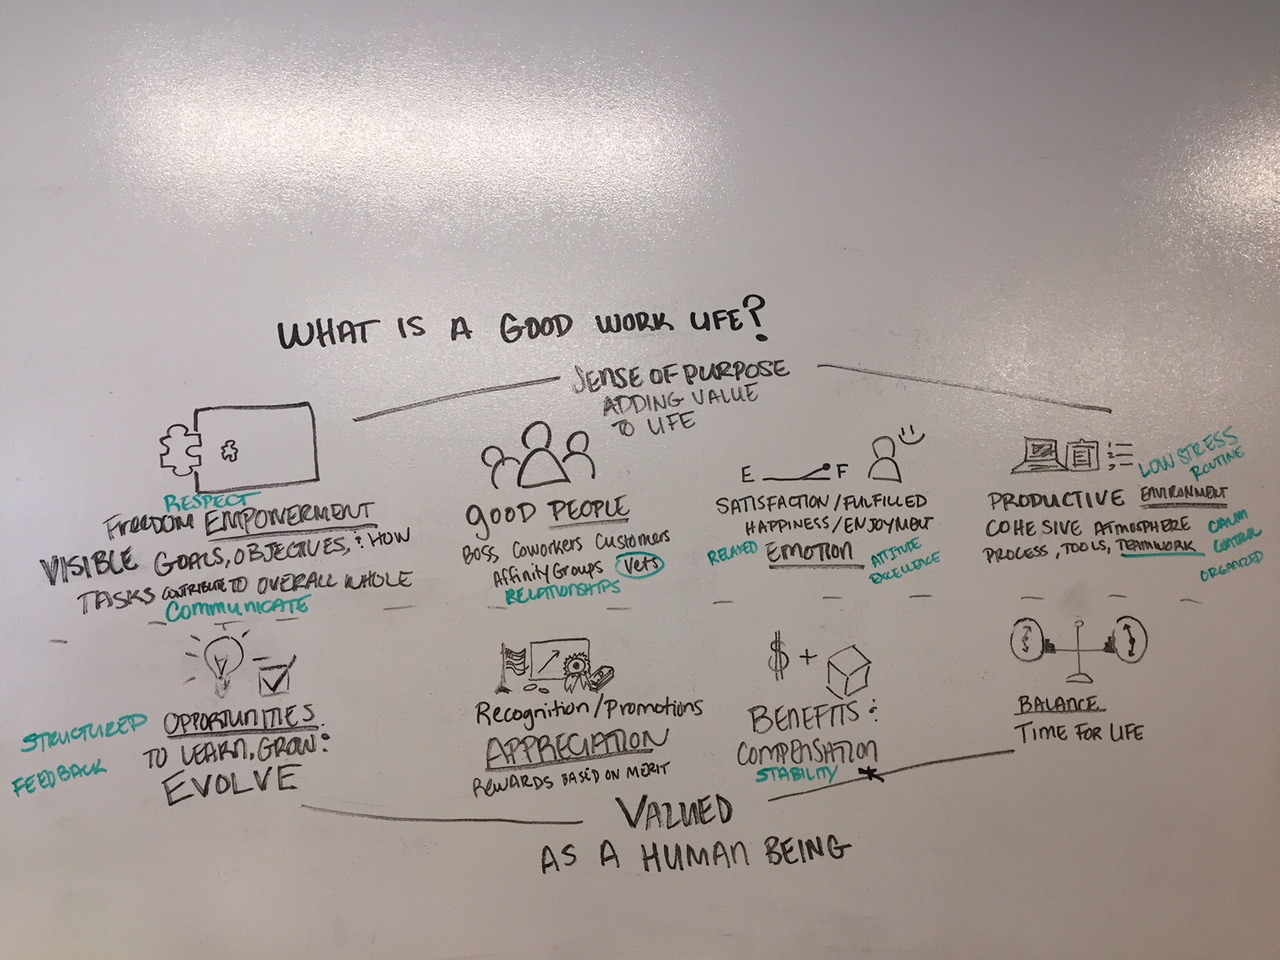 WHAT IS A GOOD WORK LIFE?
SENSE OF PURPOSE
ADDING VALUE
TO LIFE
RESPECT
FREEDOM EMPOWERMENT
VISIBLE GOALS, OBJECTIVES, & HOW
TASKS CONTRIBUTE TO OVERALL WHOLE
COMMUNICATE
GOOD PEOPLE
Boss Coworkers Customers
Affinity Groups Vets
RELATIONSHIPS
E F
SATISFACTION/FULFILLED
HAPPINESS/ENJOYMENT
RELAXED EMOTION ATTITUDE
EXCELLENCE
LOW STRESS
ROUTINE
PRODUCTIVE ENVIRONMENT
COHESIVE ATMOSPHERE
PROCESS, TOOLS, TEAMWORK
CALM
CONTROL
ORGANIZED
STRUCTURED
FEEDBACK
OPPORTUNITIES
TO LEARN, GROW &
EVOLVE
Recognition/Promotions
APPRECIATION
REWARDS BASED ON MERIT
$ +
BENEFITS &
COMPENSATION
STABILITY *
BALANCE
TIME FOR LIFE
VALUED
AS A HUMAN BEING